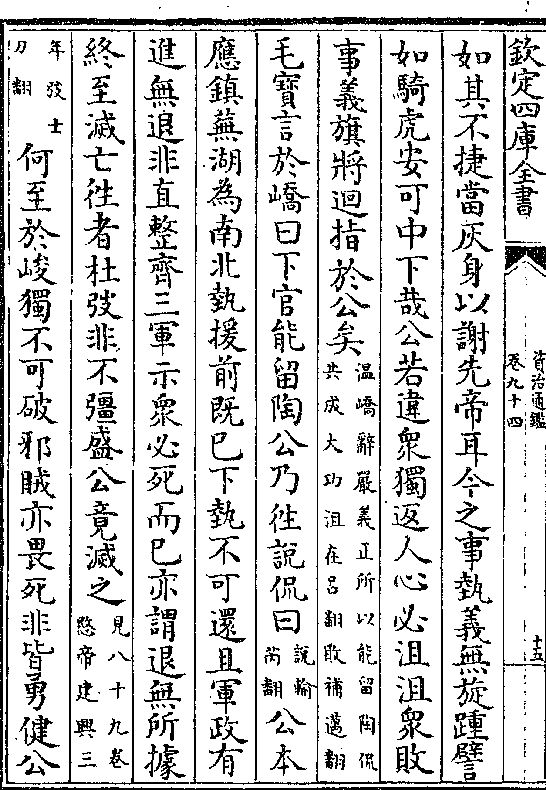 欽定四庫全書
資治通鑑
卷九十四
十五
如其不捷當灰身以謝先帝耳今之事埶義無旋踵譬
如騎虎安可中下哉公若違衆獨返人心必沮沮衆敗
事義旗將迴指於公矣温嶠辭嚴義正所以能留陶侃共成大功沮在吕翻敗補邁翻
毛寶言於嶠曰下官能留陶公乃徃說侃曰說輸芮翻公本
應鎮蕪湖為南北埶援前既已下埶不可還且軍政有
進無退非直整齊三軍示衆必死而已亦謂退無所據
終至滅亡徃者杜弢非不彊盛公竟滅之見八十九卷愍帝建興三
年弢士刀翻何至於峻獨不可破邪賊亦畏死非皆勇健公